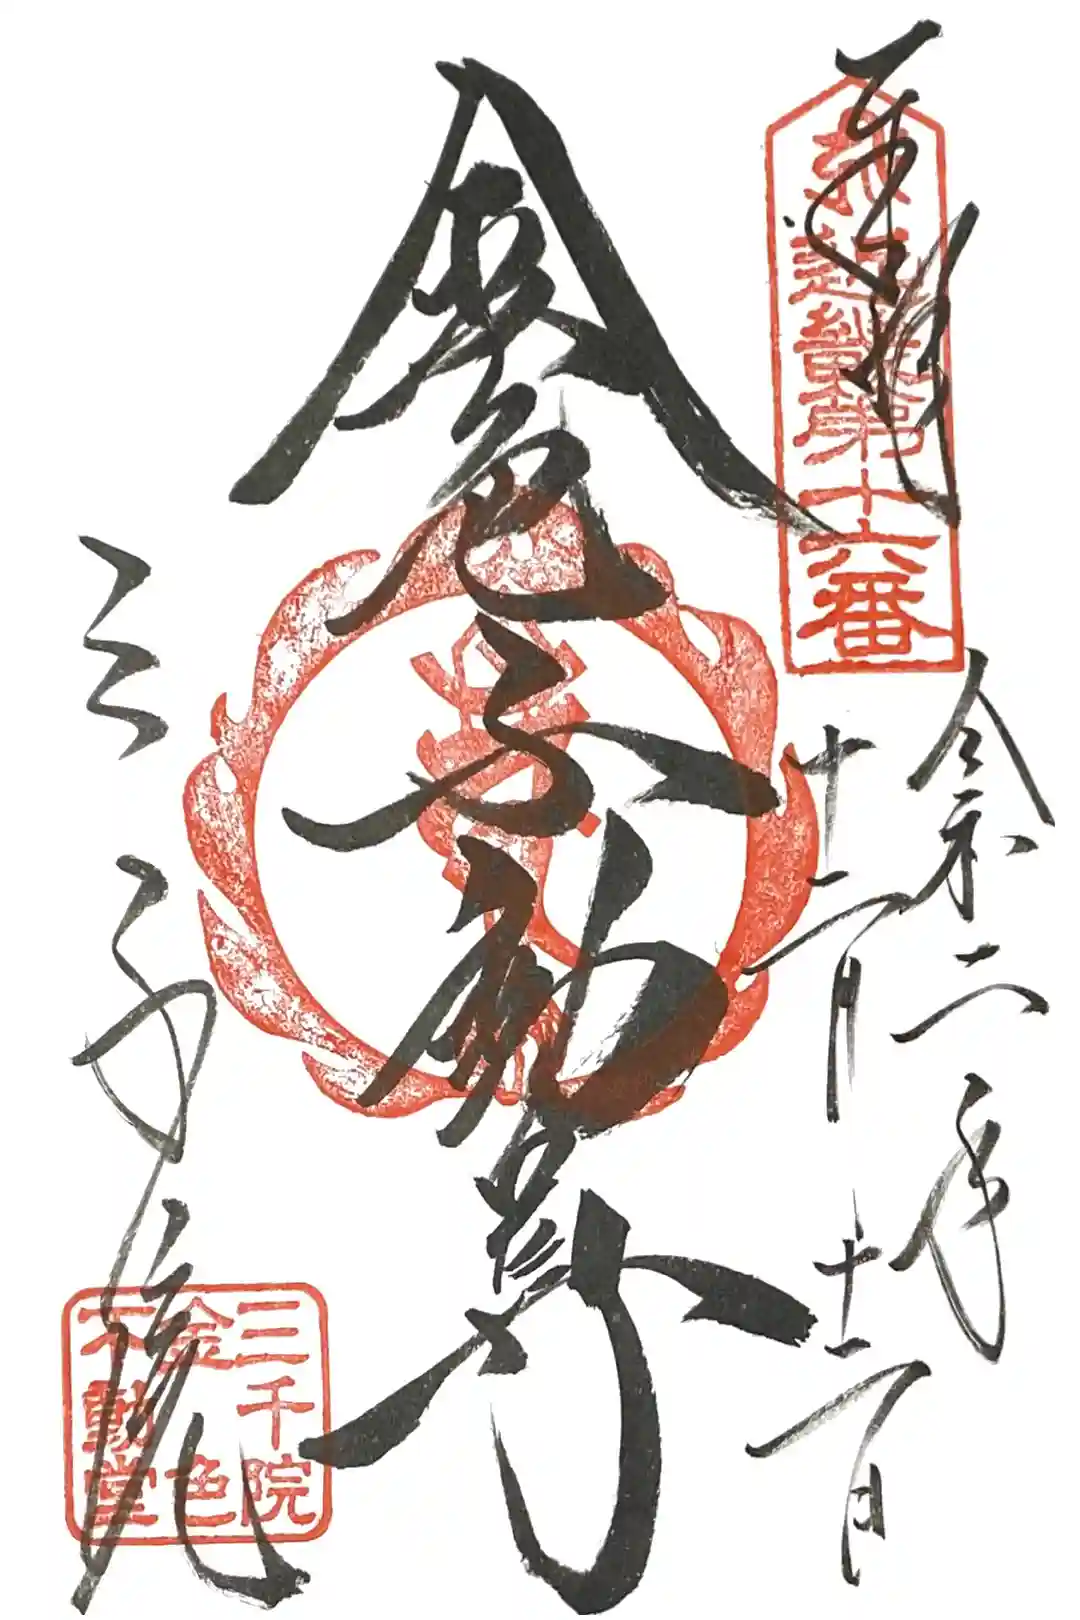 奉拝
近畿第十六番
令和二年
十二月十二日
金色不動尊
三千院
三千院
金色
不動堂